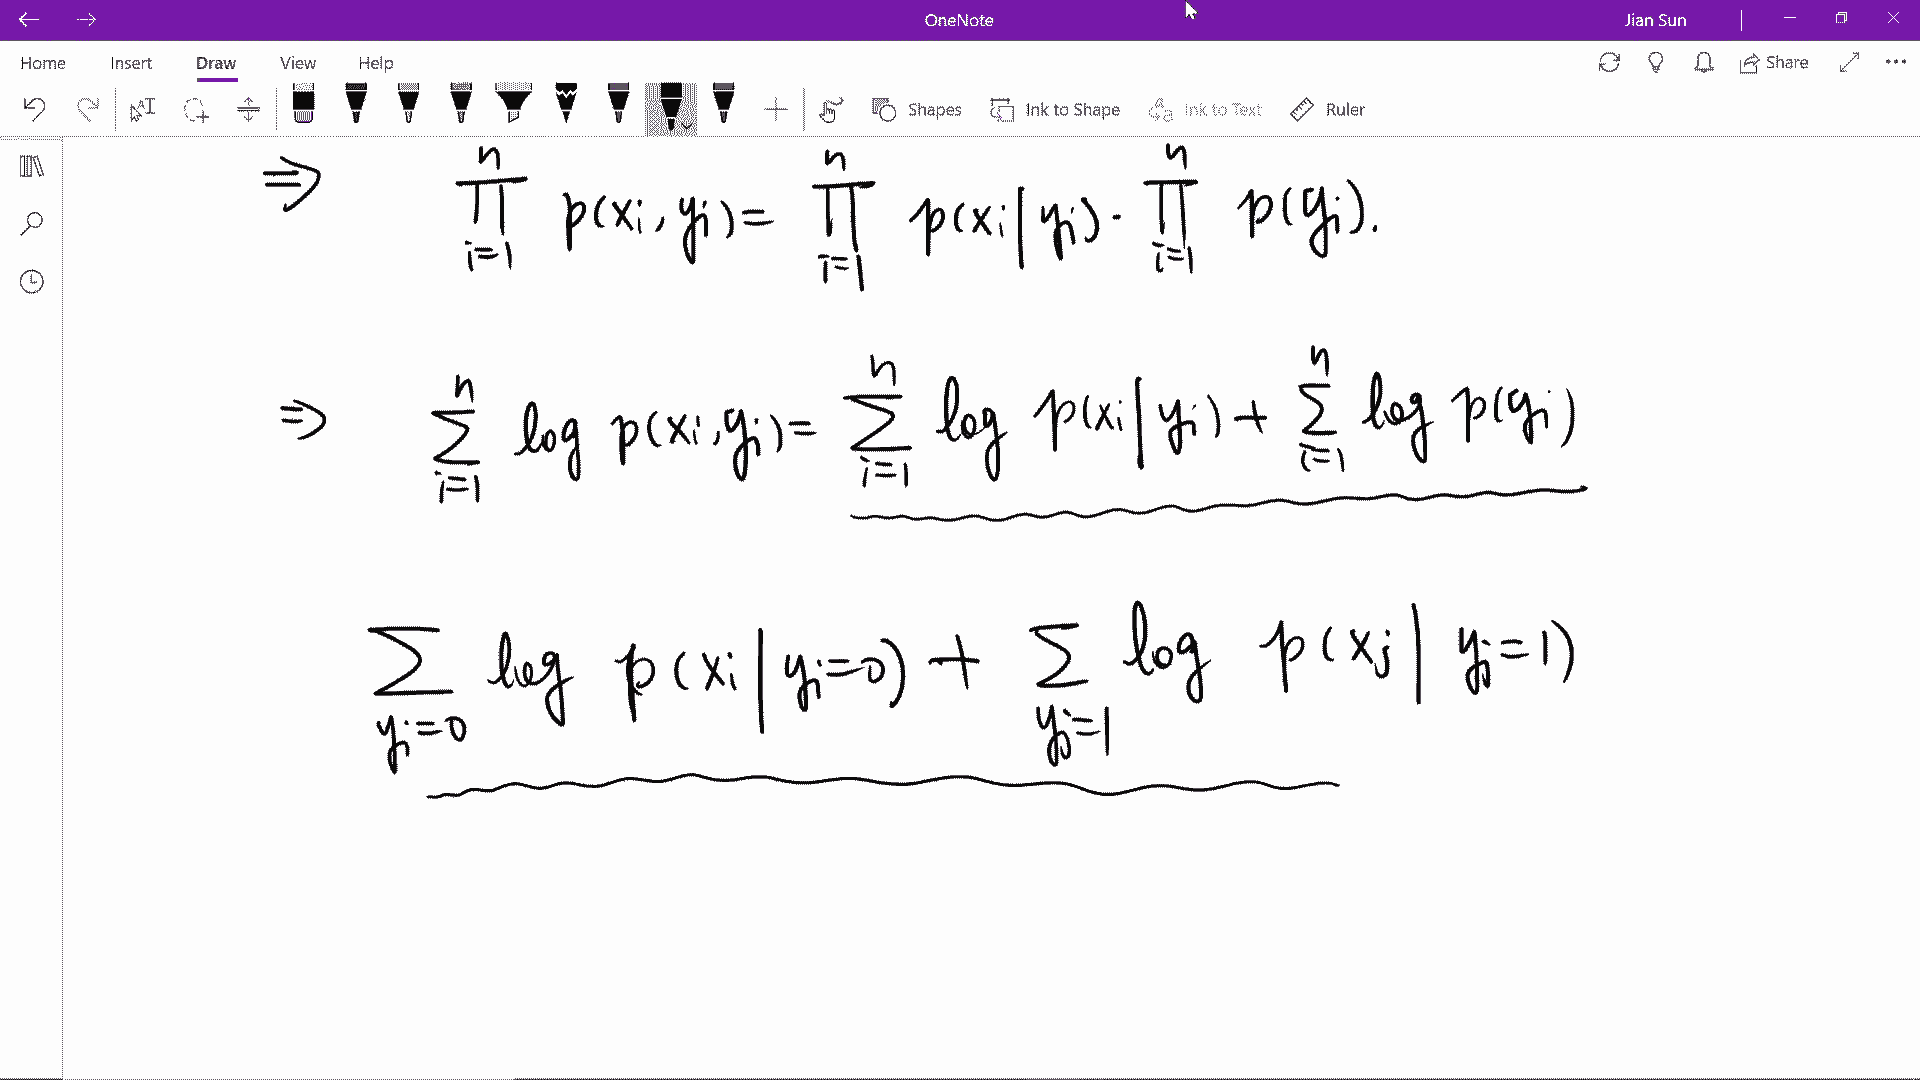 OneNote
Jian Sun
Home Insert Draw View Help
Share
Shapes Ink to Shape Ink to Text Ruler
⇒ ∏_{i=1}^{n} p(x_i, y_i) = ∏_{i=1}^{n} p(x_i | y_i) · ∏_{i=1}^{n} p(y_i).
⇒ ∑_{i=1}^{n} log p(x_i, y_i) = ∑_{i=1}^{n} log p(x_i | y_i) + ∑_{i=1}^{n} log p(y_i)
∑_{y_i=0} log p(x_i | y_i=0) + ∑_{y_j=1} log p(x_j | y_j=1)